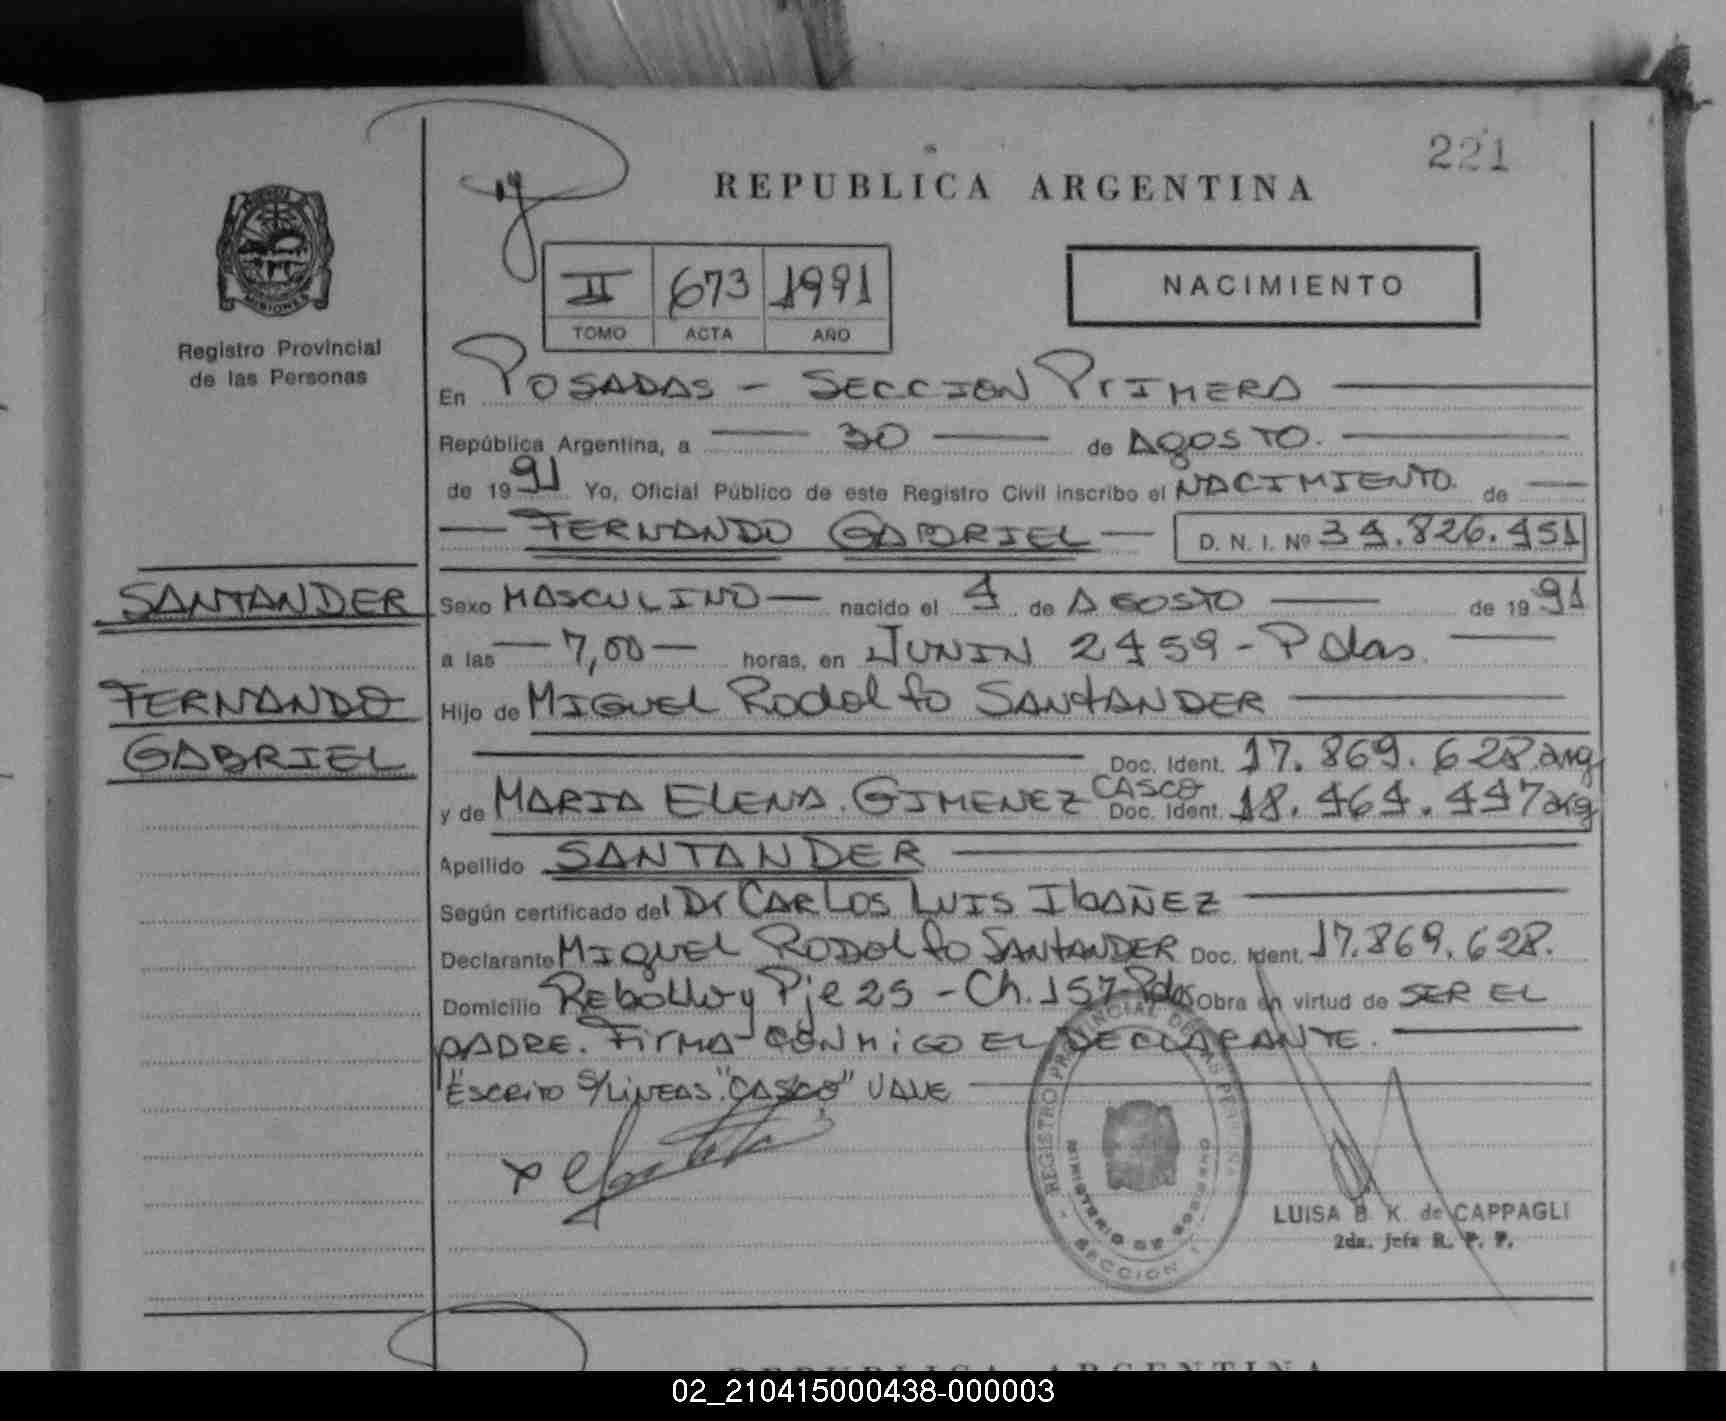 221
REPUBLICA ARGENTINA
MISIONES
Registro Provincial
de las Personas
II 673 1991
TOMO ACTA AÑO
NACIMIENTO
En POSADAS - SECCION PRIMERA
República Argentina, a 30 de AGOSTO.
de 1991 Yo, Oficial Público de este Registro Civil inscribo el NACIMIENTO de
FERNANDO GABRIEL D. N. I. Nº 34.826.451
SANTANDER
FERNANDO
GABRIEL
Sexo MASCULINO nacido el 4 de AGOSTO de 1991
a las 7,00 horas, en JUNIN 2459 - Pdas.
Hijo de MIGUEL Rodolfo SANTANDER
Doc. Ident. 17.869.628 arg
CASCO
y de MARIA ELENA GIMENEZ Doc. Ident. 18.464.447 arg
Apellido SANTANDER
Según certificado del Dr CARLOS LUIS IbAÑEZ
Declarante MIGUEL RODOLFO SANTANDER Doc. Ident. 17.869.628.
Domicilio Rebollo y Pje 25 - Ch. 157 - Pdas Obra en virtud de SER EL
PADRE. FIRMA CONMIGO EL DECLARANTE.
"ESCRITO S/LINEAS "CASCO" VALE
REGISTRO PROVINCIAL DE LAS PERSONAS
MINISTERIO DE GOBIERNO
SECCION 1
LUISA B. K. de CAPPAGLI
2da. Jefa R. P. P.
REPUBLICA ARGENTINA
02_210415000438-000003